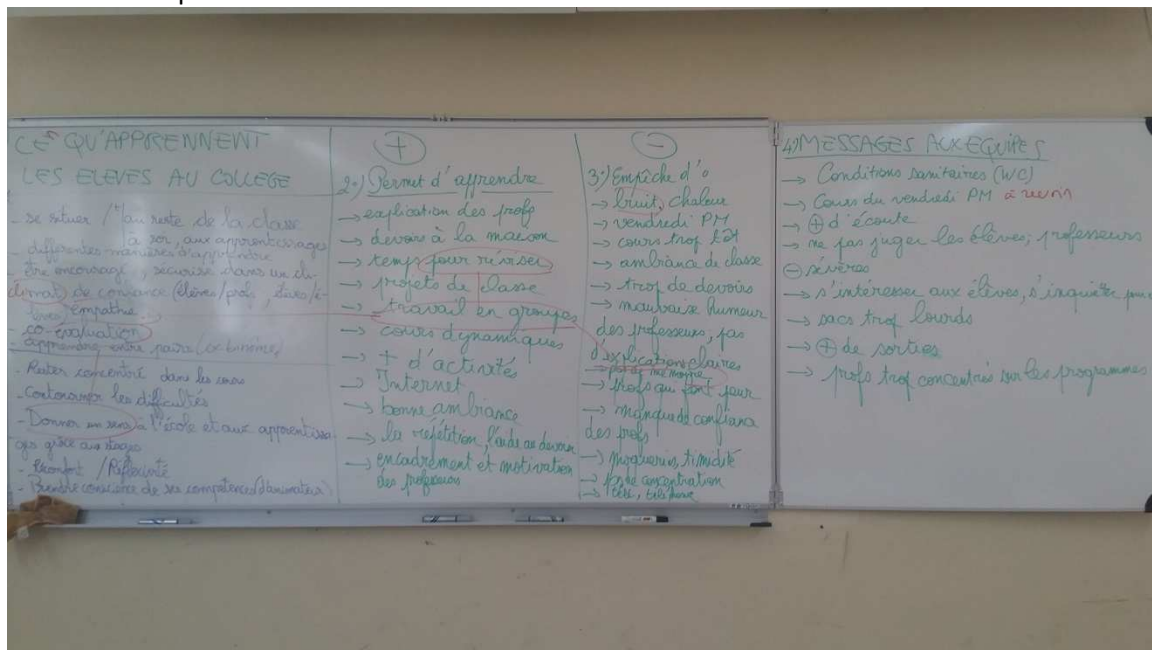 CE QU'APPRENNENT
LES ELEVES AU COLLEGE
- se situer / au reste de la classe
à soi, aux apprentissages
- différentes manières d'apprendre
- être encouragé, sécurisé dans un cli-
climat de confiance (élèves/profs, élèves/é-
lèves) empathie
- co-évaluation
- apprendre entre pairs (ex binôme)
- Rester concentré dans les cours
- Contourner les difficultés
- Donner un sens à l'école et aux apprentissa
ges grâce aux stages
- Réconfort / Réflexivité
- Prendre conscience de ses compétences (d'animateur)
+
2°) Permet d'apprendre
→ explication des profs
→ devoirs à la maison
→ temps pour réviser
→ projets de classe
→ travail en groupes
→ cours dynamiques
→ + d'activités
→ Internet
→ bonne ambiance
→ la répétition, l'aide au devoir
→ encadrement et motivation
des professeurs
-
3°) Empêche d'°
→ bruit, chaleur
→ vendredi PM
→ cours trop tôt
→ ambiance de classe
→ trop de devoirs
→ mauvaise humeur
des professeurs, pas
d'explications claires
→ pas de mémoire
→ Profs qui font peur
→ manque de confiance
des profs
→ moqueries, timidité
→ pas de concentration
→ télé, téléphone
4) MESSAGES AUX EQUIPES
→ Conditions sanitaires (WC)
→ Cours du vendredi PM à
→ + d'écoute
→ ne pas juger les élèves; professeurs
- sévères
→ s'intéresser aux élèves, s'inquiéter pour
→ sacs trop lourds
→ + de sorties
→ profs trop concentrés sur les programmes